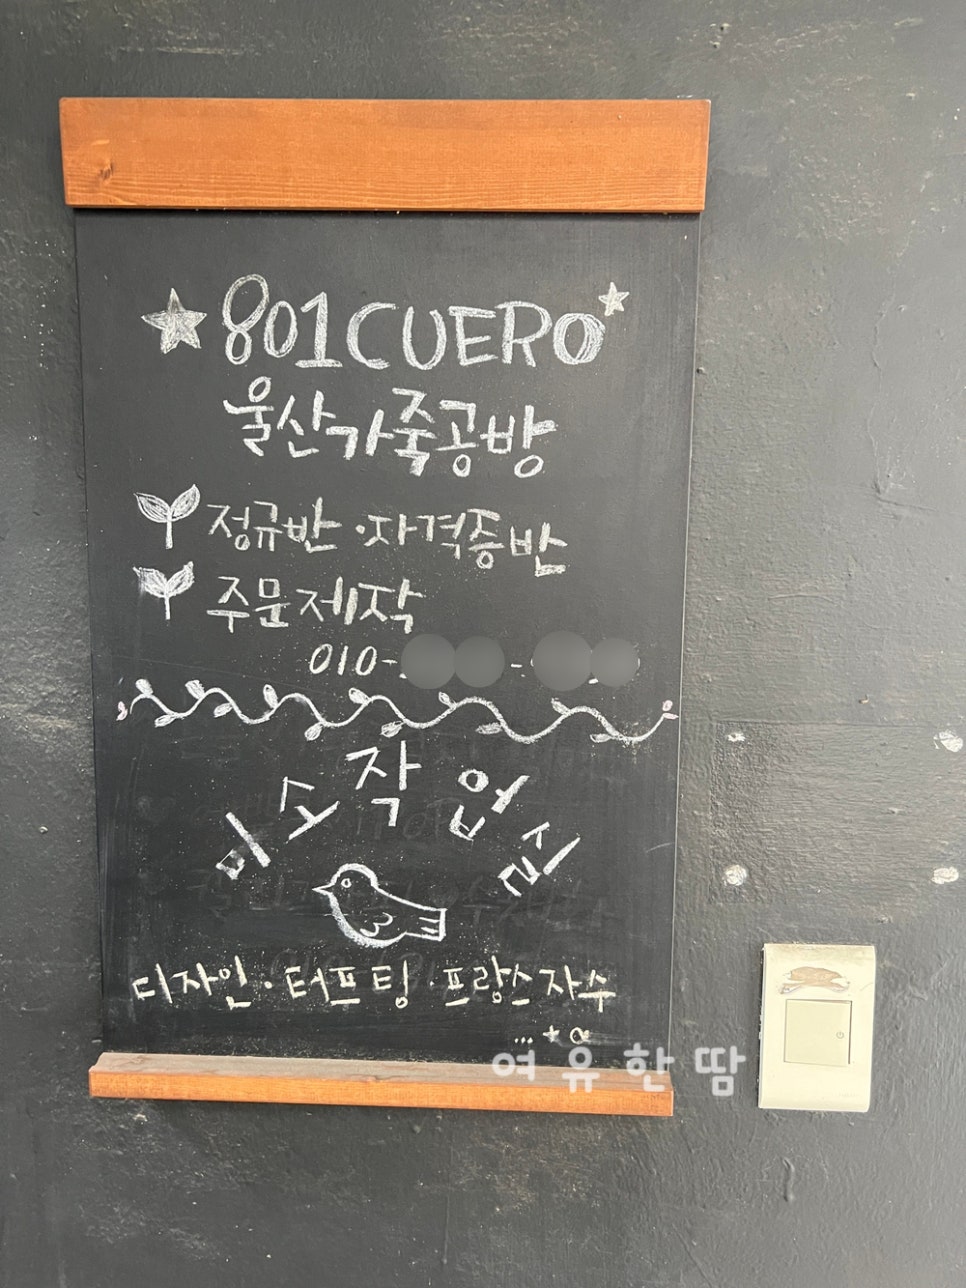 801CUERO
울산가죽공방
정규반·자격증반
주문제작
010-
미소작업실
디자인·터프팅·프랑스자수
...+α
여유한땀